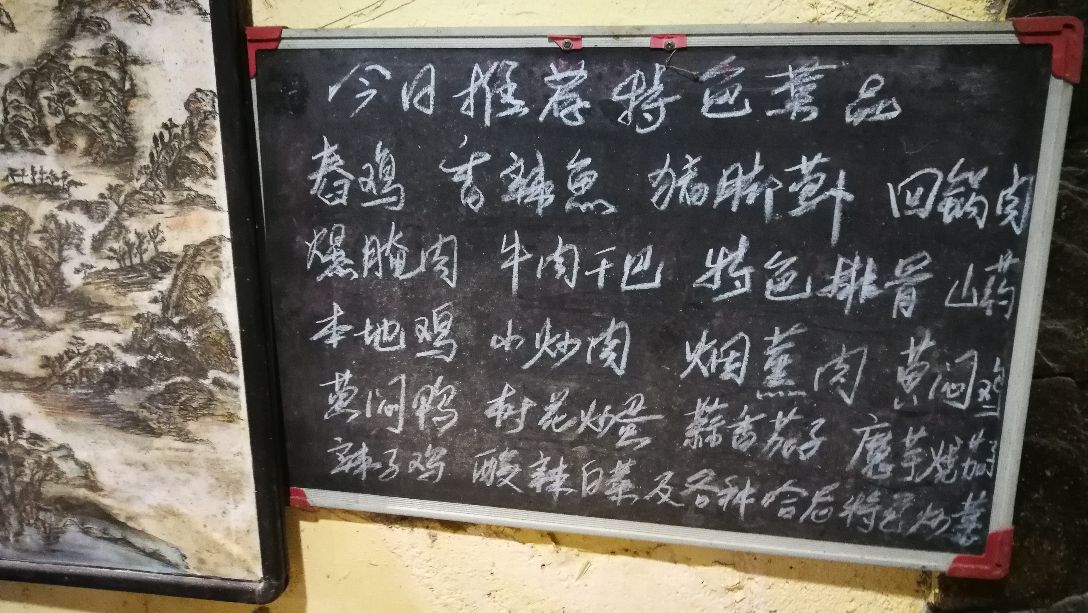 今日推荐特色菜品
舂鸡 香辣鱼 猪脚萆 回锅肉
爆腌肉 牛肉干巴 特色排骨 山药
本地鸡 小炒肉 烟熏肉 黄闷鸡
黄闷鸭 树花炒蛋 蒜香茄子 魔芋烧茄子
辣子鸡 酸辣白菜及各种哈尼特色炒菜